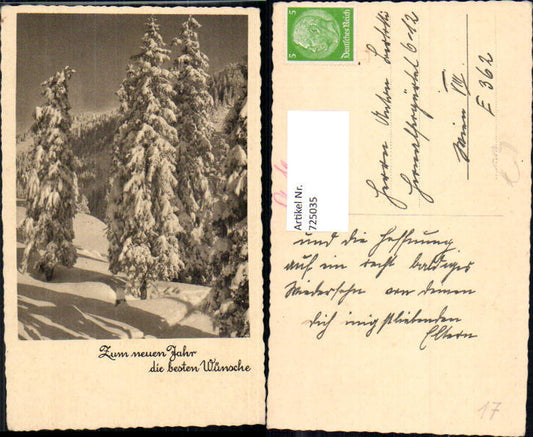 Zum neuen Jahr
die besten Wünsche
5
Deutsches Reich
5
Herrn Anton
6-12
Wien
E 362
Artikel Nr.
725035
und die Hoffnung
auf ein recht baldiges
Wiedersehn von deinen
dich innigstliebenden
Eltern
17